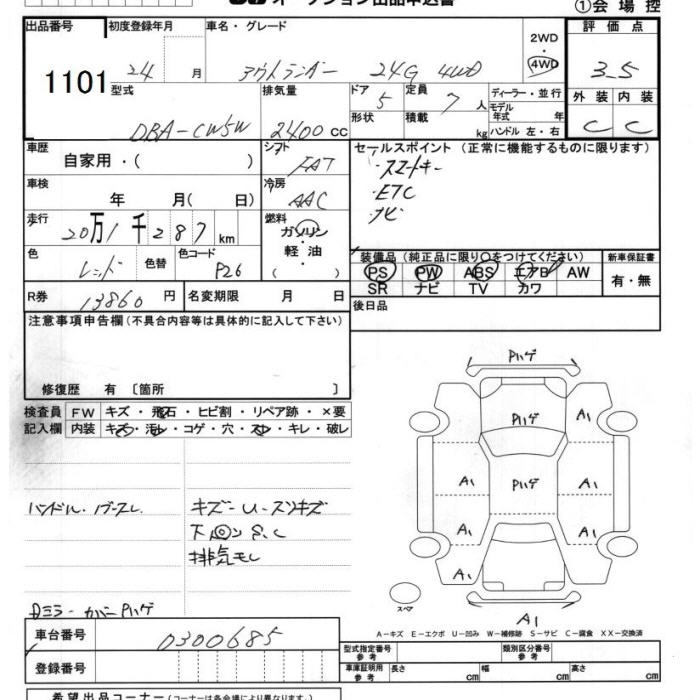 オークション出品申込書
①会場控
出品番号 初度登録年月 車名・グレード 2WD・4WD 評価点
1101 24 月 アウトランダー 24G 4WD 3.5
型式 排気量 ドア 5 定員 7 人 ディーラー・並行 外装 内装
DBA-CW5W 2400 cc 形状 積載 kg モデル年式 年 ハンドル 左・右 C C
車歴 自家用・( ) シフト FAT セールスポイント (正常に機能するものに限ります)
・スマートキー
車検 年 月( 日) 冷房 AAC
・ETC
・ナビ
走行 20万1千287 km 燃料 ガソリン・軽油・( )
色 レッド 色替 色コード P26
装備品 (純正品に限り○をつけてください) 新車保証書
PS PW ABS エアB AW 有・無
SR ナビ TV カワ
R券 13860 円 名変期限 月 日
後日品
注意事項申告欄 (不具合内容等は具体的に記入して下さい)
修復歴 有 〔箇所 〕
検査員記入欄 FW キズ・飛石・ヒビ割・リペア跡・×要
内装 キズ・汚レ・コゲ・穴・スレ・キレ・破レ
Pハゲ
Pハゲ A1
A1 Pハゲ A1
A1 A1
A1
スペア A1
ハンドル・
キズ-U-スリキズ
下回り S.C
排気モレ
Dミラーカバー Pハゲ
A-キズ E-エクボ U-凹み W-補修跡 S-サビ C-腐食 XX-交換済
車台番号 0300685
型式指定番号 参考 類別区分番号 参考
登録番号
車庫証明用 参考 長さ cm 幅 cm 高さ cm
希望出品コーナー (コーナーは各会場により異なります。)